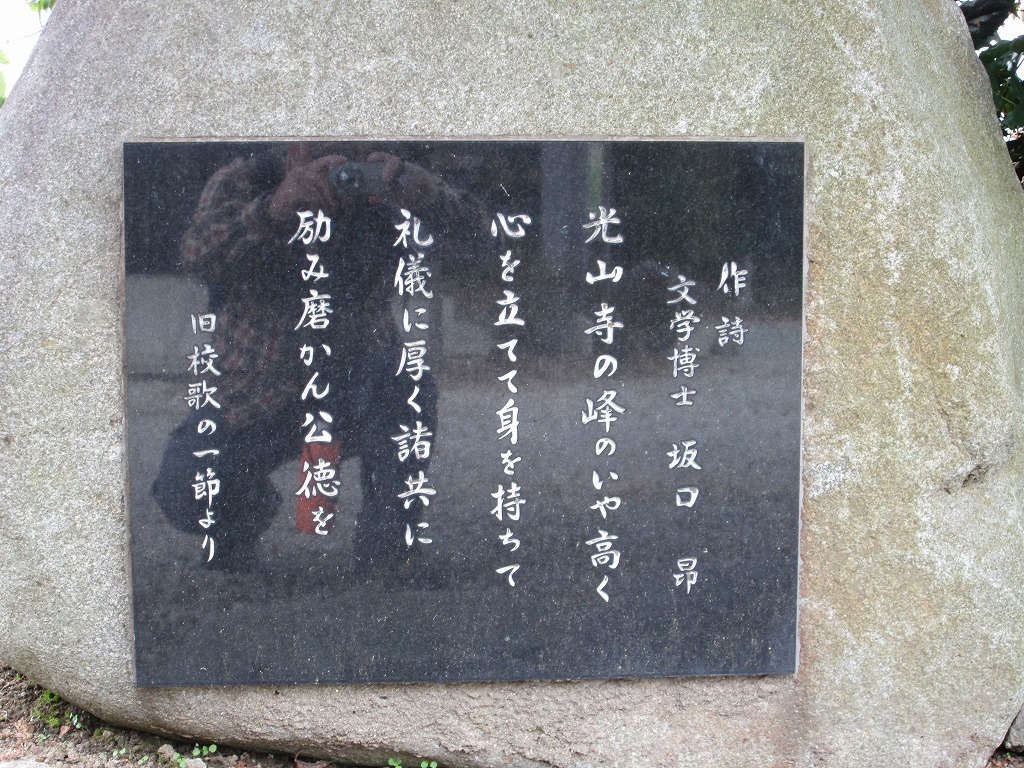 作詩
文学博士 坂口 昂
光山寺の峰のいや高く
心を立てて身を持ちて
礼儀に厚く諸共に
励み磨かん公徳を
旧校歌の一節より